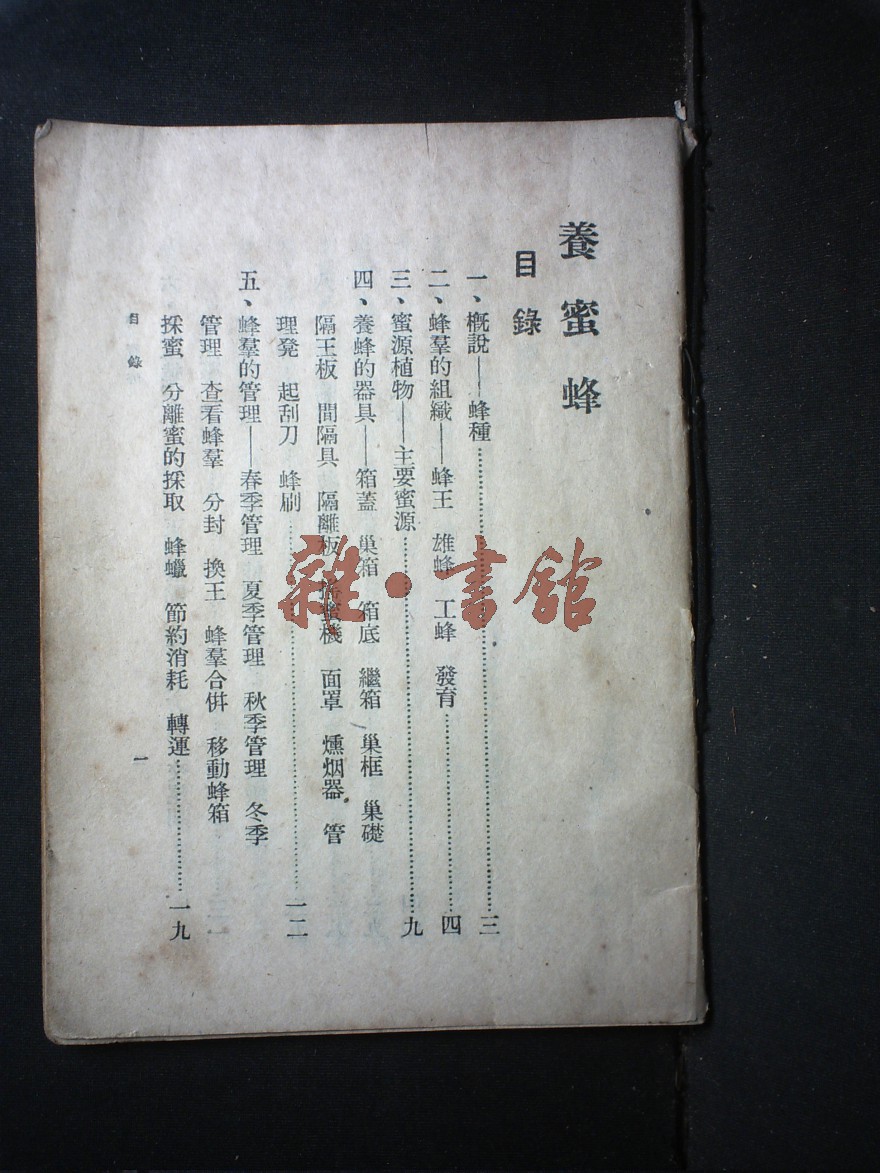 養蜜蜂
目錄
一、概說——蜂種……三
二、蜂羣的組織——蜂王 雄蜂 工蜂 發育……四
三、蜜源植物——主要蜜源……九
四、養蜂的器具——箱蓋 巢箱 箱底 繼箱 巢框 巢礎
隔王板 間隔具 隔離板 機 面罩 燻烟器 管
理凳 起刮刀 蜂刷……一二
五、蜂羣的管理——春季管理 夏季管理 秋季管理 冬季
管理 查看蜂羣 分封 換王 蜂羣合倂 移動蜂箱
採蜜 分離蜜的採取 蜂蠟 節約消耗 轉運……一九
目錄
一
雜·書館